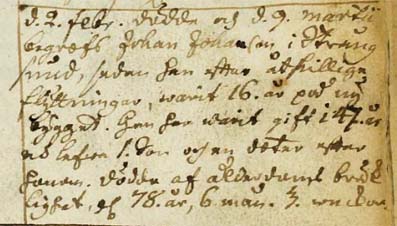 d. 2. febr. dödde och d. 9. martii
begrofs Johan Johansson i Strang
sund, sedan han efter åtskillige
flyttningar, warit 16. år på
bygget. han har warit gift i 47. år
och en doter efter
honom. dödde af ålderdoms bräck
lighet, 78. år, 6. mån. 3. weckor.